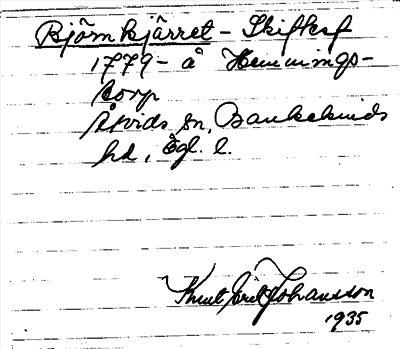 Björnkjärret - Skiftesf
1779 - å Hemmings-
torp
Åtvids sn, Bankekinds
hd, Ögl. l.
Knut Erik Johansson
1935